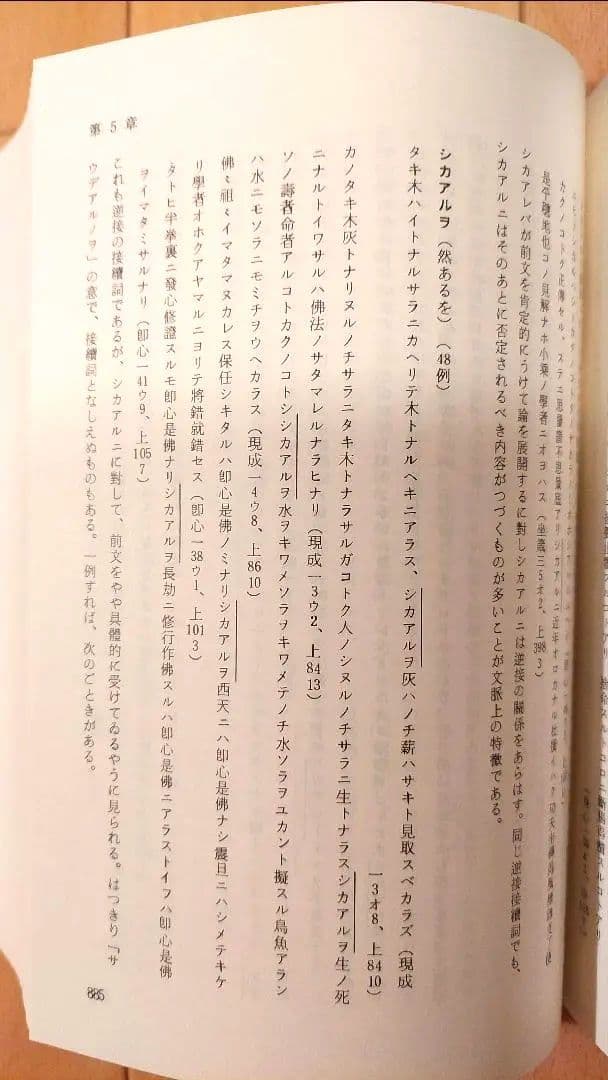 カクノコトク正傳セル、ステニ思量箇不思量底アリシカアルニ近年オロカナル杜撰イハク功夫坐禪
是平穩地也コノ見解ナホ小乘ノ學者ニオヨハス（坐蔵三5オ2、上3983）
シカアレバが前文を肯定的にうけて論を展開するに對しシカアルニは逆接の關係をあらはす。同じ逆接接續詞でも、
シカアルニはそのあとに否定されるべき内容がつづくものが多いことが文脈上の特徴である。
シカアルヲ（然あるを）（48例）
タキ木ハイトナルサラニカヘリテ木トナルヘキニアラス、シカアルヲ灰ハノチ薪ハサキト見取スベカラズ（現成
一3オ8、上8410）
カノタキ木灰トナリヌルノチサラニタキ木トナラサルガコトク人ノシヌルノチサラニ生トナラスシカアルヲ生ノ死
ニナルトイワサルハ佛法ノサタマレルナラヒナリ（現成一3ウ2、上8413）
ソノ壽者命者アルコトカクノコトシシカアルヲ水ヲキワメソラヲキワメテノチ水ソラヲユカント擬スル鳥魚アラン
ハ水ニモソラニモミチヲウヘカラス（現成一4ウ8、上8610）
佛〻祖〻イマタマヌカレス保任シキタルハ卽心是佛ノミナリシカアルヲ西天ニハ卽心是佛ナシ震旦ニハシメテキケ
リ學者オホクアヤマルニヨリテ將錯就錯セス（卽心一38ウ1、上1013）
タトヒ半拳裏ニ發心修證スルモ卽心是佛ナリシカアルヲ長劫ニ修行作佛スルハ卽心是佛ニアラストイフハ卽心是佛
ヲイマタミサルナリ（卽心一41ウ9、上1057）
これも逆接の接續詞であるが、シカアルニに對して、前文をやや具體的に受けてゐるやうに見られる。はつきり「サ
ウデアルノヲ」の意で、接續詞となしえぬものもある。一例すれば、次のごときがある。
第5章
885